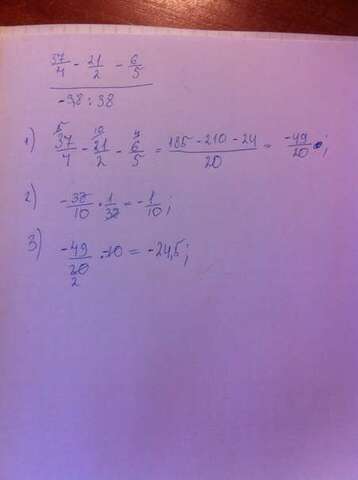 37/4 - 21/2 - 6/5
-3,8 : 38
1) 37/4 - 21/2 - 6/5 = 185 - 210 - 24/20 = -49/20;
2) -38/10 · 1/38 = -1/10;
3) -49/20 · -10 = -24,5;